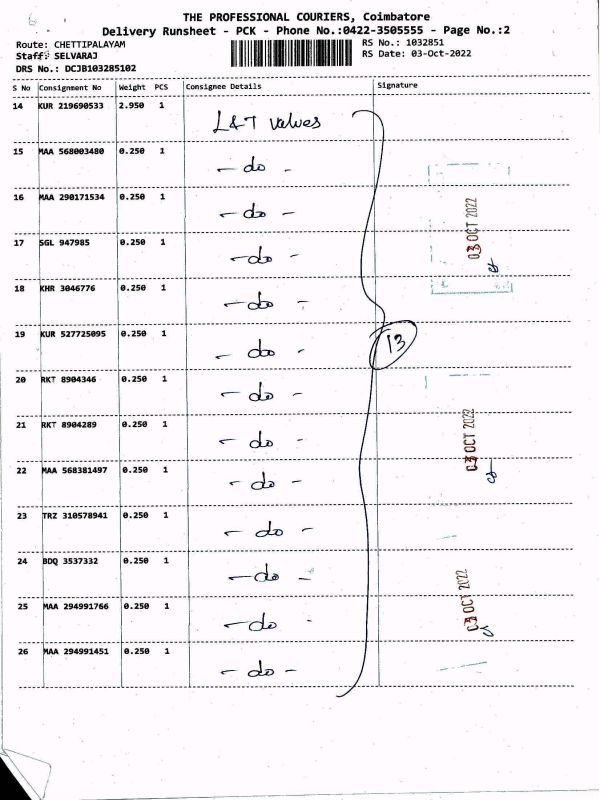 THE PROFESSIONAL COURIERS, Coimbatore
Delivery Runsheet - PCK - Phone No.:0422-3505555 - Page No.:2
Route: CHETTIPALAYAM
RS No.: 1032851
Staff: SELVARAJ
RS Date: 03-Oct-2022
DRS No.: DCJB103285102
S No Consignment No Weight PCS Consignee Details Signature
14 KUR 219690533 2.950 1 L&T valves
15 MAA 568003480 0.250 1 - do -
16 MAA 290171534 0.250 1 - do -
17 SGL 947985 0.250 1 - do -
18 KHR 3046776 0.250 1 - do -
19 KUR 527725095 0.250 1 - do -
20 RKT 8904346 0.250 1 - do -
21 RKT 8904289 0.250 1 - do -
22 MAA 568381497 0.250 1 - do -
23 TRZ 310578941 0.250 1 - do -
24 BDQ 3537332 0.250 1 - do -
25 MAA 294991766 0.250 1 - do -
26 MAA 294991451 0.250 1 - do -
13
03 OCT 2022
03 OCT 2022
03 OCT 2022